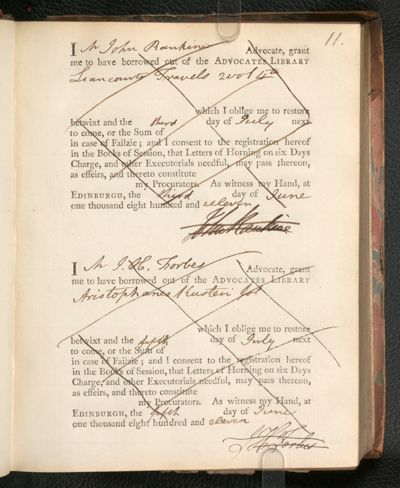 11.
I Mr John Rankine Advocate, grant
me to have borrowed out of the ADVOCATES LIBRARY
Liancourts Travels 2 vol 4to
which I oblige me to restore
betwixt and the third day of July next
to come, or the Sum of
in case of Failzie; and I consent to the registration hereof
in the Books of Session, that Letters of Horning on six Days
Charge, and other Executorials needful, may pass thereon,
as effeirs, and thereto constitute
my Procurators. As witness my Hand, at
EDINBURGH, the third day of June
one thousand eight hundred and eleven
John Rankine
I Mr J. H. Forbes Advocate, grant
me to have borrowed out of the ADVOCATES LIBRARY
Aristophanes Kusteri fol
which I oblige me to restore
betwixt and the fifth day of July next
to come, or the Sum of
in case of Failzie; and I consent to the registration hereof
in the Books of Session, that Letters of Horning on six Days
Charge, and other Executorials needful, may pass thereon,
as effeirs, and thereto constitute
my Procurators. As witness my Hand, at
EDINBURGH, the fifth day of June
one thousand eight hundred and eleven
Forbes